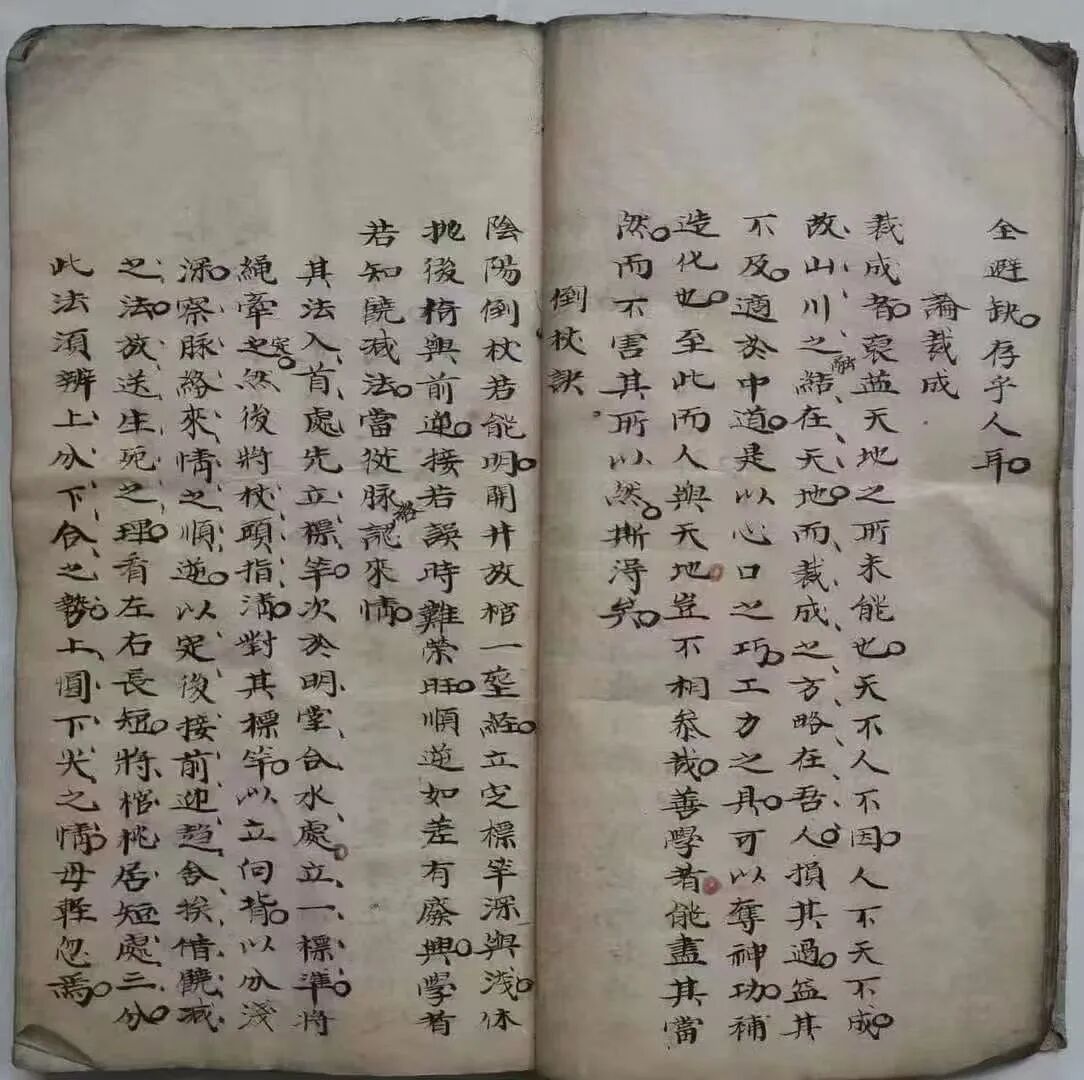 全避缺存乎人耳
論裁成
裁成者裒益天地之所未能也天不人不因人不天不成
故山川之融結在天地而裁成之方略在吾人損其過益其
不及適於中道是以心口之巧工力之具可以奪神功補
造化也至此而人與天地豈不相叅哉善學者能盡其當
然而不害其所以然斯淂矣
倒杖訣
陰陽倒杖若能明開井放棺一塟經立定標竿深與淺休
抛後椅與前逆接若誤時難榮旺順逆如差有廢興學者
若知饒减法當從脉絡認來情
其法入首處先立標竿次於明堂合水處立一標準將
繩牽之定然後將杖頭指清對其標竿以立向背以分淺
深察脉絡來情之順逆以定後接前迎趋舍挨借饒减
之法放送生死之理看左右長短將棺桃居短處二分
此法須辨上分下合之勢上圓下尖之情毋輊忽焉